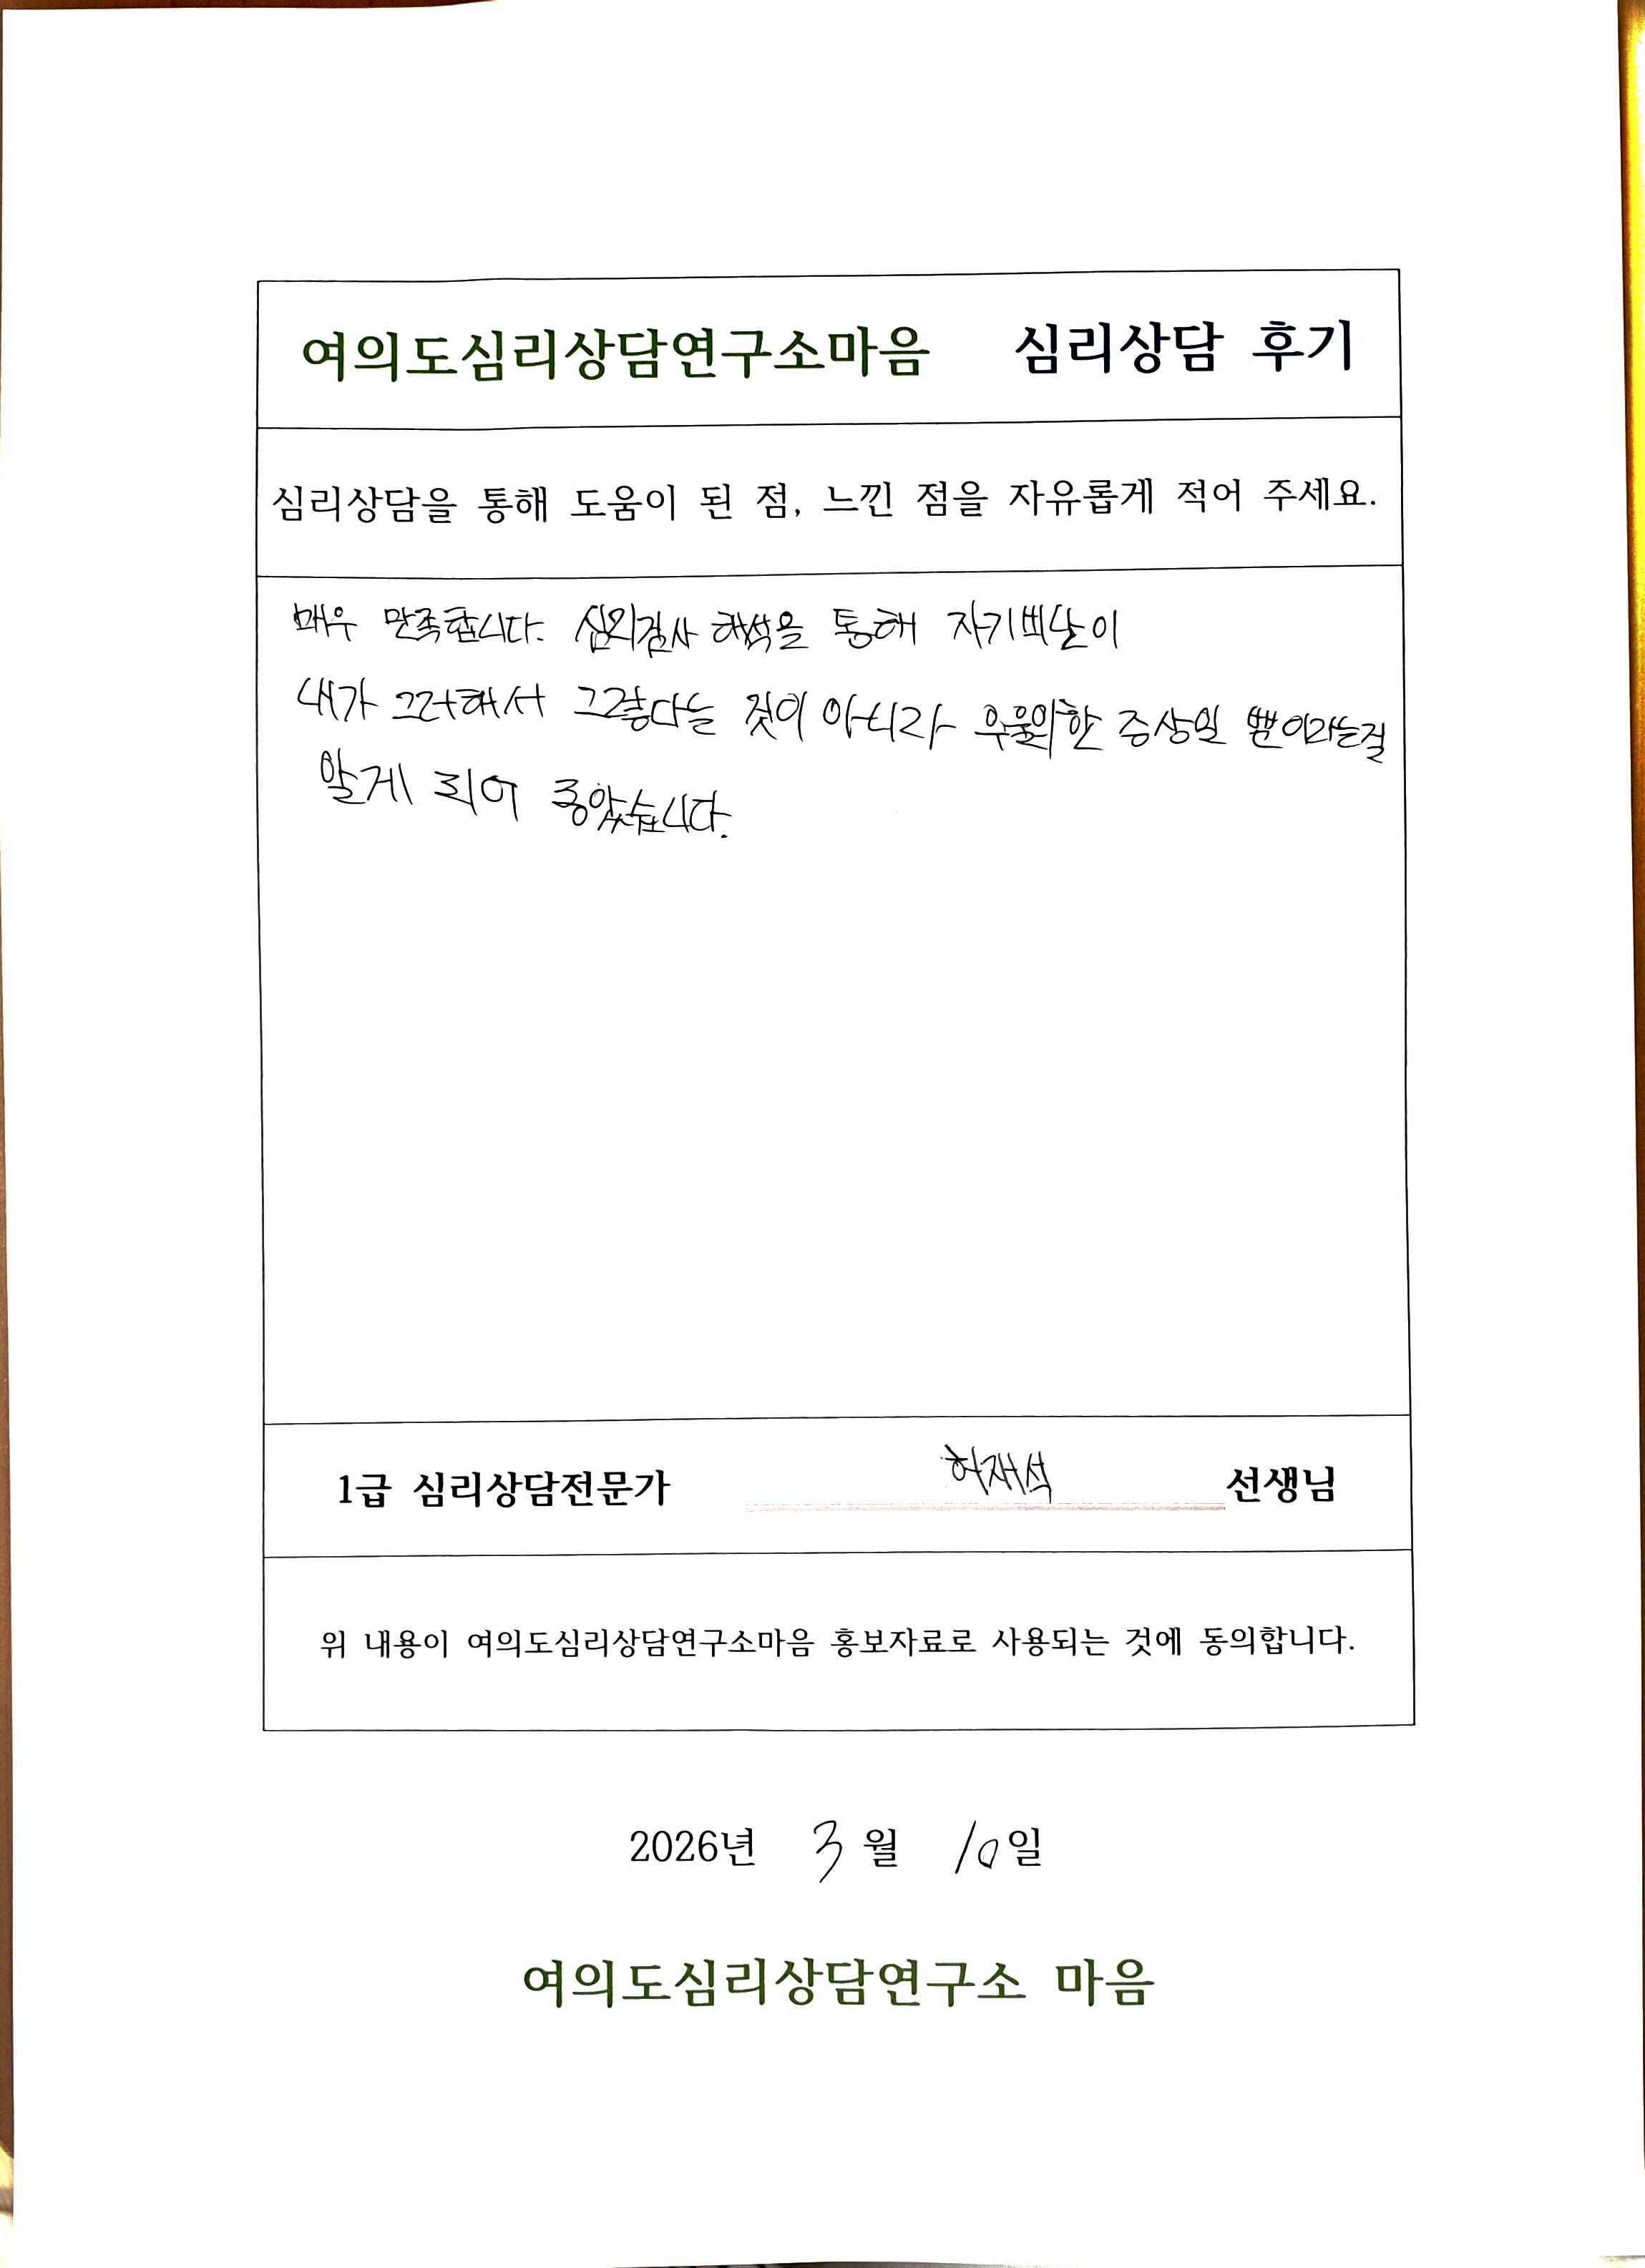 여의도심리상담연구소마음 심리상담 후기
심리상담을 통해 도움이 된 점, 느낀 점을 자유롭게 적어 주세요.
매우 만족합니다. 심리검사 해석을 통해 자기비난이
내가 그러해서 그렇다는 것이 아니라 우울의한 증상일 뿐이라는걸
알게 되어 좋았습니다.
1급 심리상담전문가 허재석 선생님
위 내용이 여의도심리상담연구소마음 홍보자료로 사용되는 것에 동의합니다.
2026년 3월 10일
여의도심리상담연구소 마음